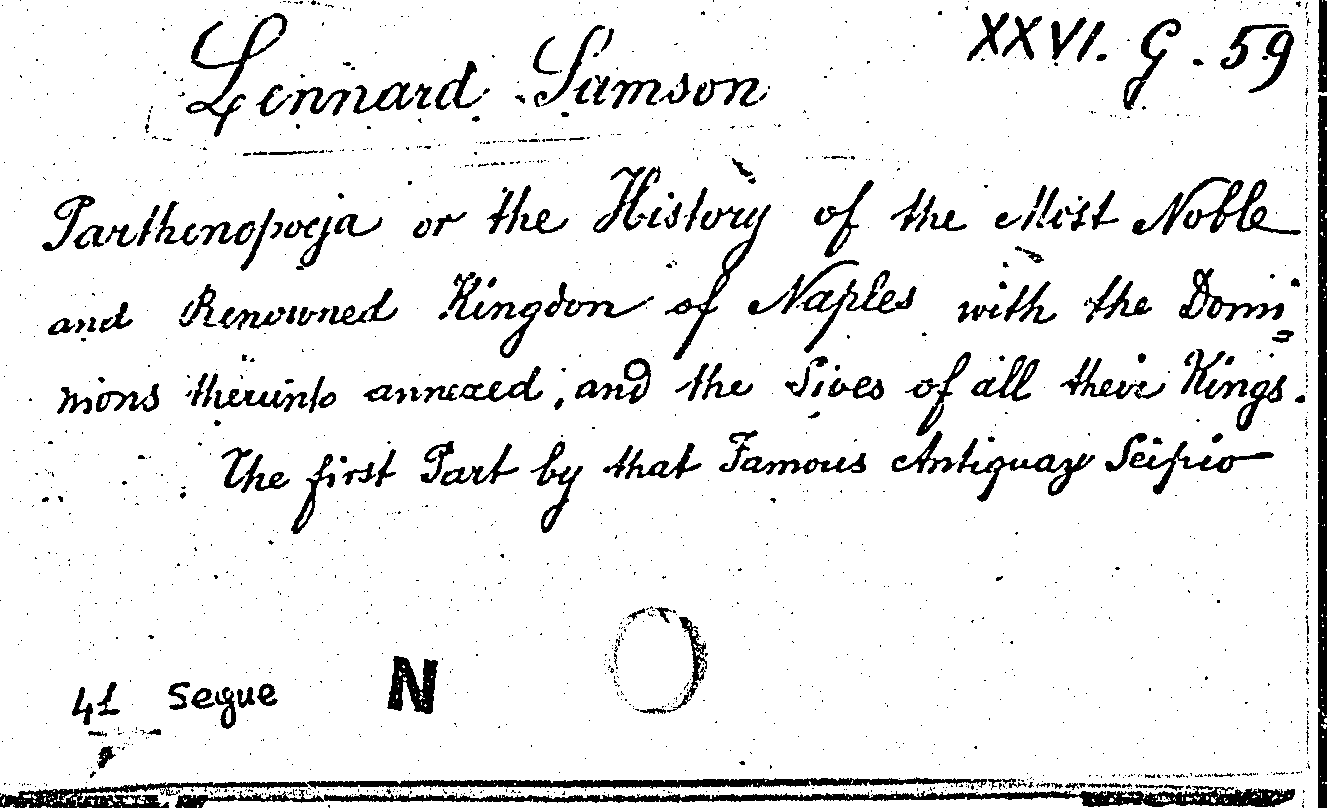 Lennard Samson
XXVI. G. 59
Parthenopoeja or the History of the Most Noble
and Renowned Kingdon of Naples with the Domi=
nions therunto annexed, and the Lives of all their Kings.
The first Part by that Famous Antiquay Scipio
41 Segue N